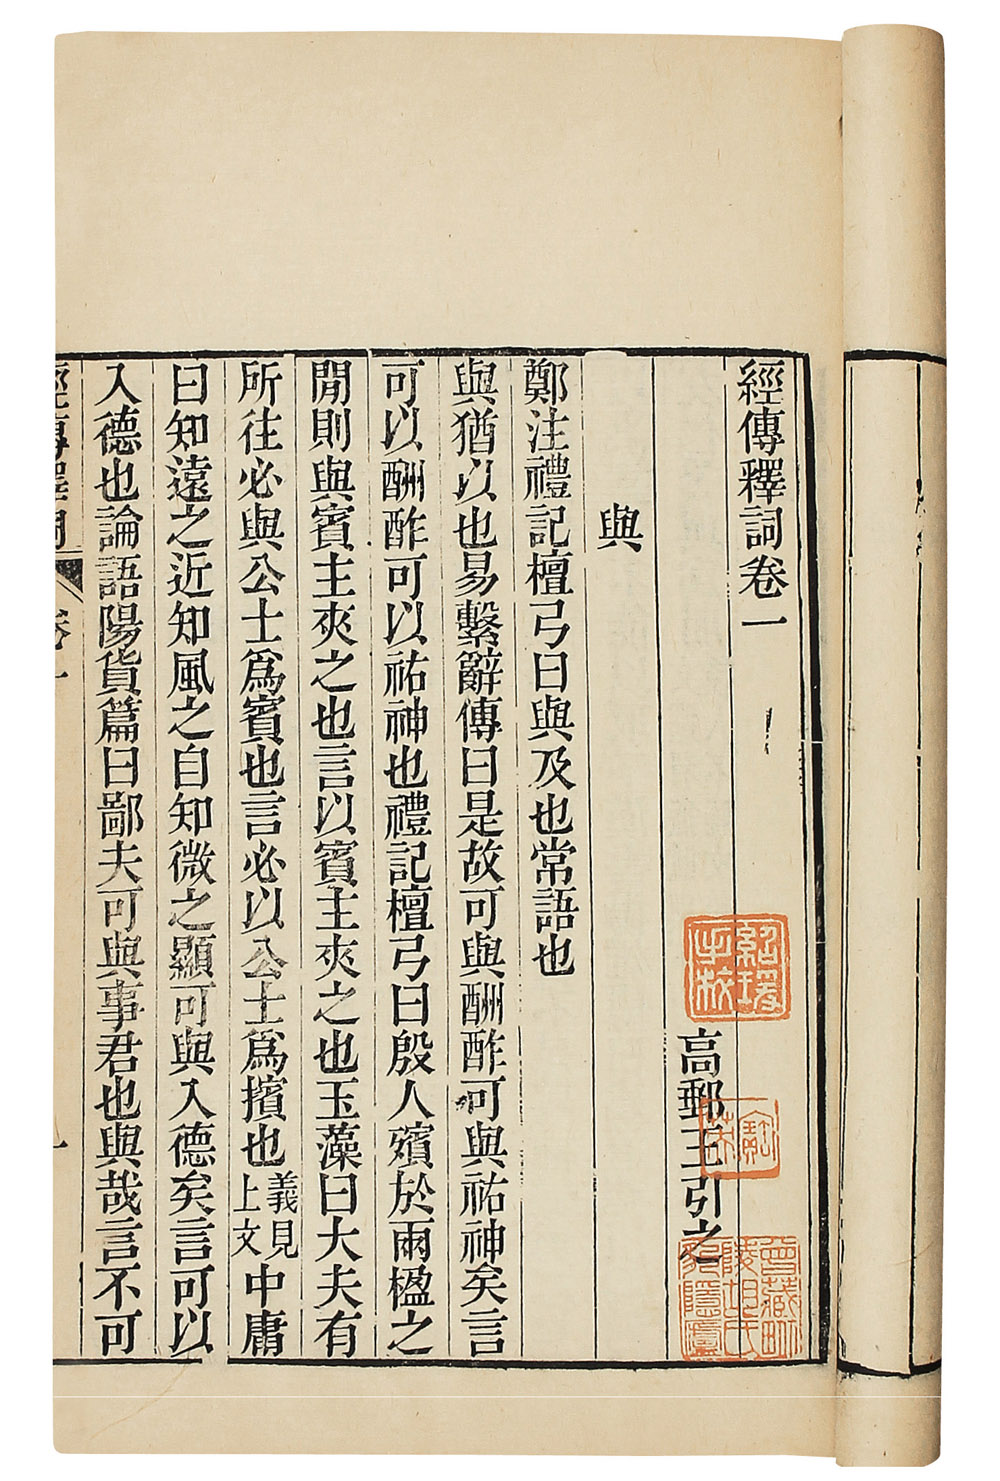 經傳釋詞卷一
高郵王引之
與
鄭注禮記檀弓曰與及也常語也
與猶以也易繫辭傳曰是故可與酬酢可與祐神矣言
可以酬酢可以祐神也禮記檀弓曰殷人殯於兩楹之
閒則與賓主夾之也言以賓主夾之也玉藻曰大夫有
所往必與公士爲賓也言必以公士爲擯也義見上文中庸
曰知遠之近知風之自知微之顯可與入德矣言可以
入德也論語陽貨篇曰鄙夫可與事君也與哉言不可
經傳釋詞 卷一 一